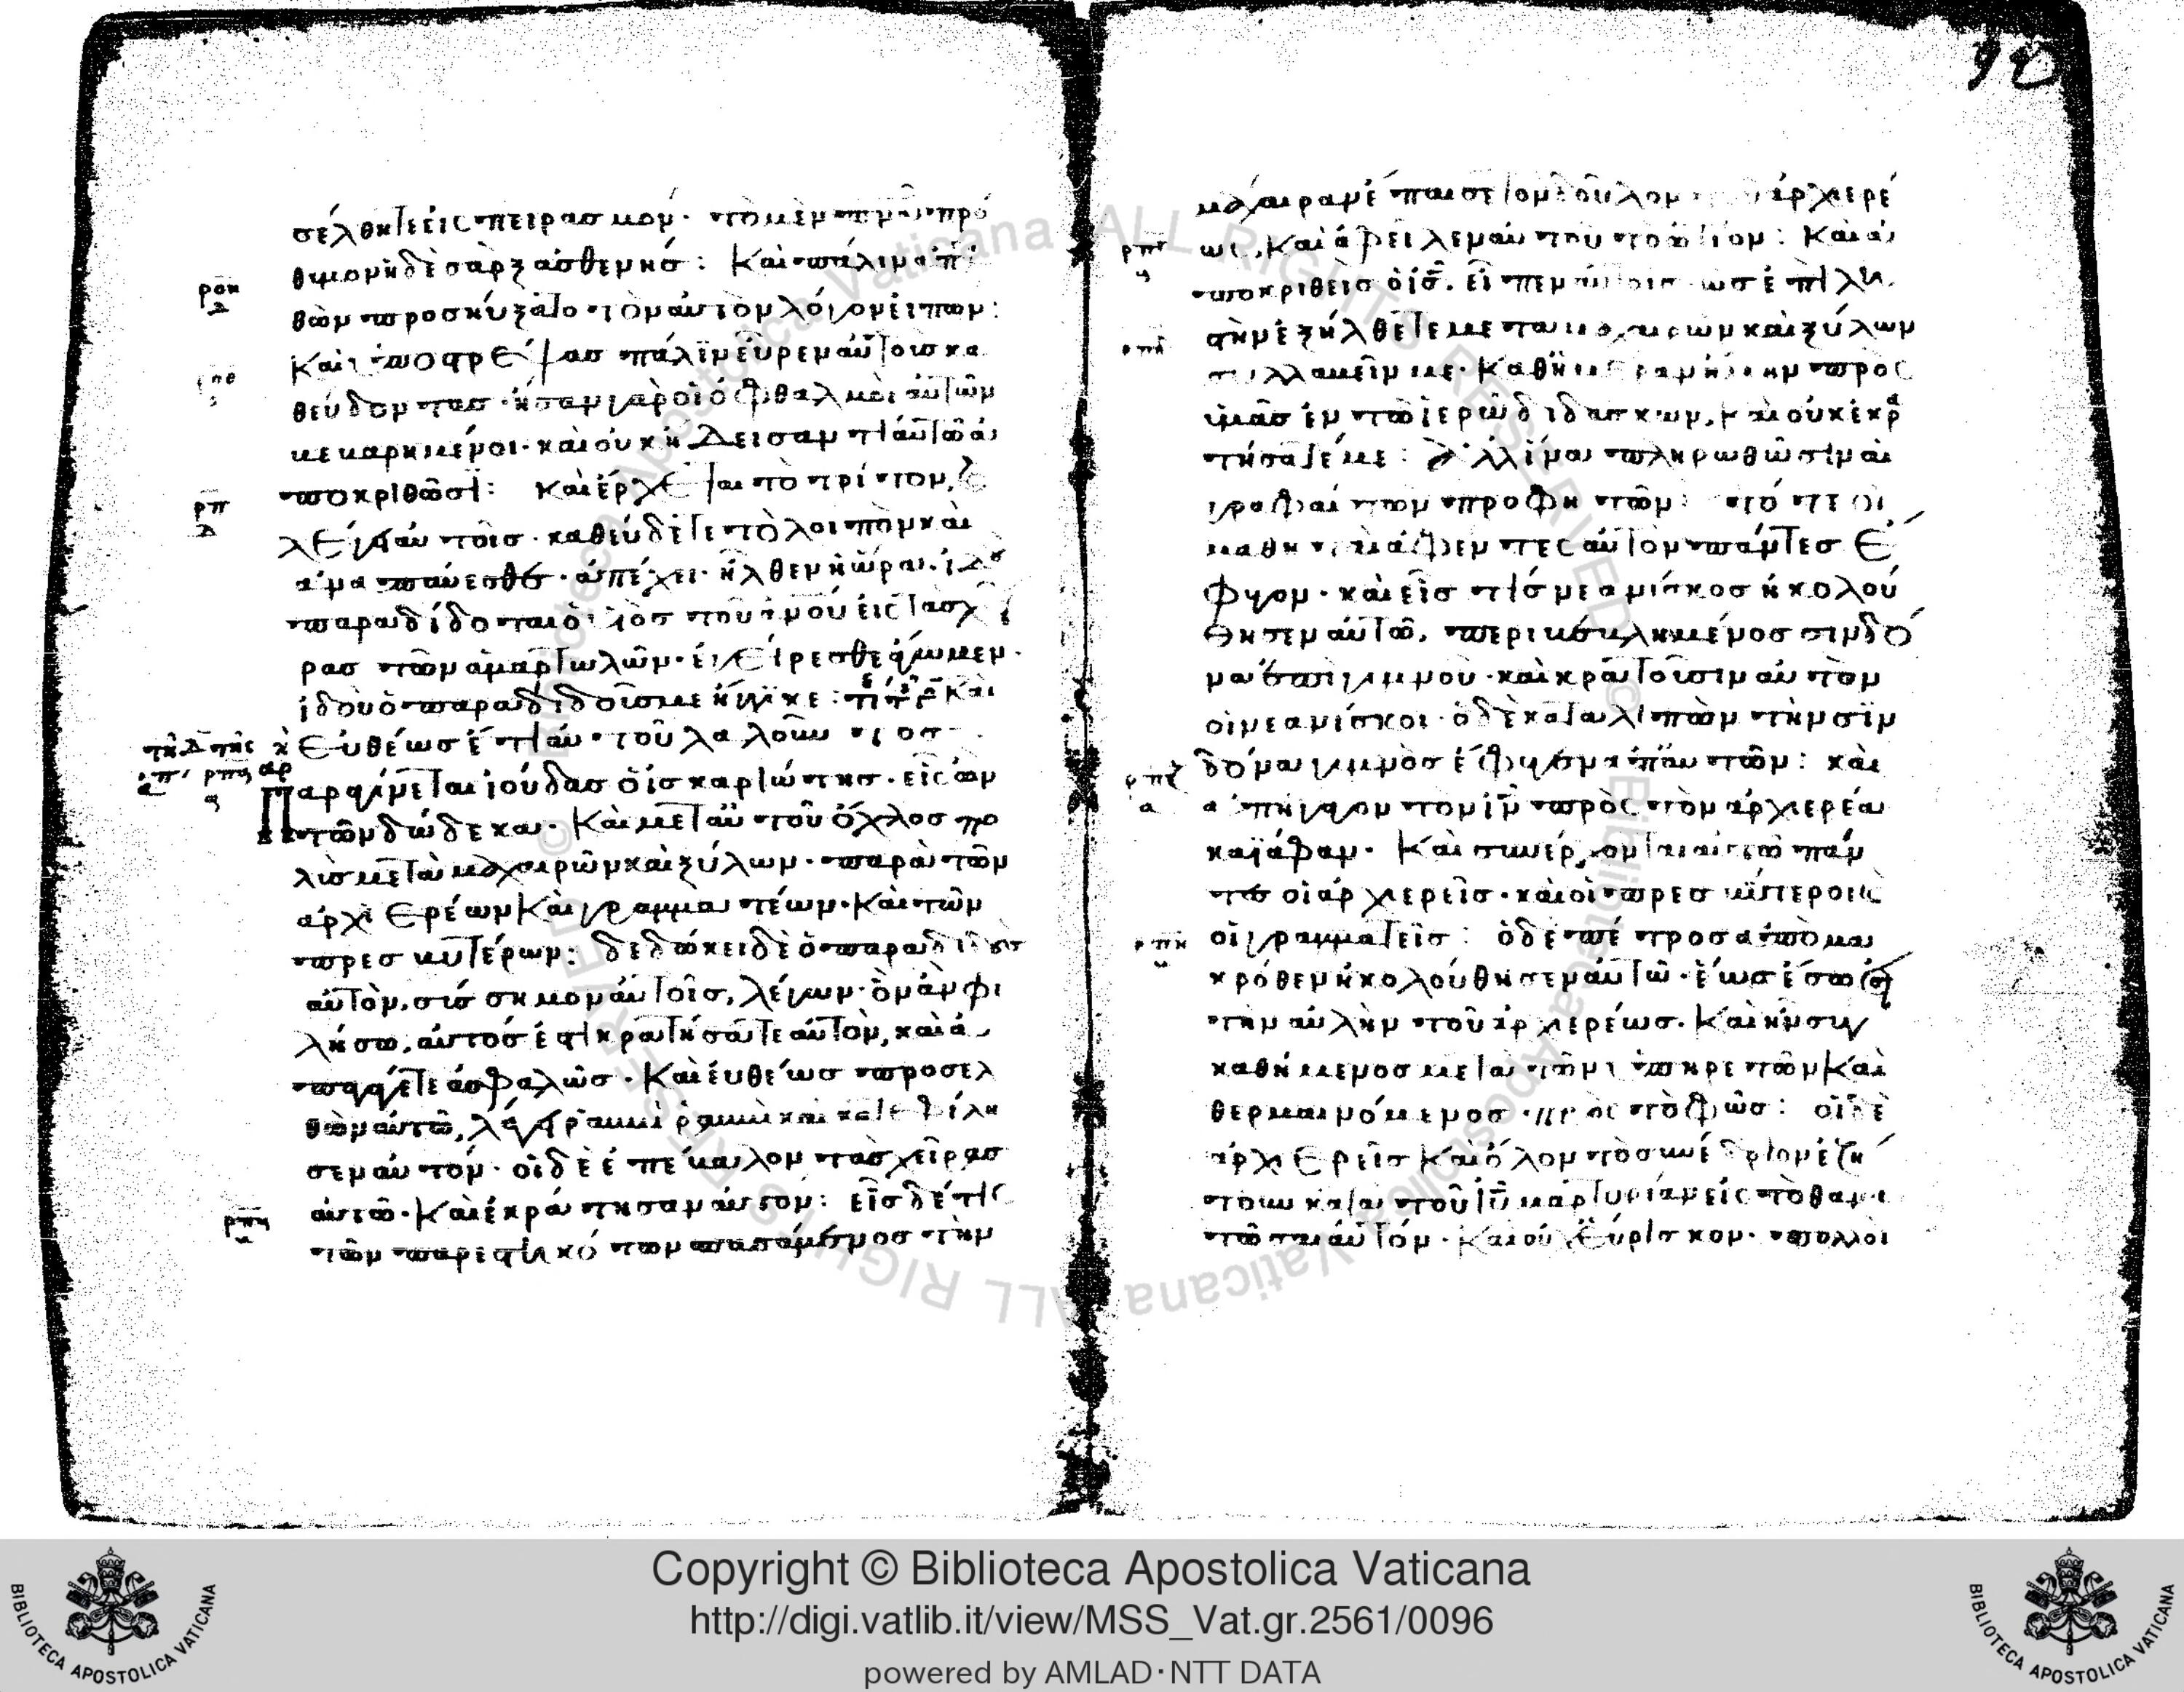 σέλθητε εἰς πειρασμόν· τὸ μὲν πνᾶ πρό
θυμον ἡ δὲ σὰρξ ἀσθενής: Καὶ πάλιν ἀπελ
θὼν προσηύξατο τὸν αὐτὸν λόγον εἰπών:
Καὶ ὑποστρέψας πάλιν εὗρεν αὐτοὺς κα
θεύδοντας· ἦσαν γὰρ οἱ ὀφθαλμοὶ αὐτῶν
βεβαρημένοι· καὶ οὐκ ᾔδεισαν τί αὐτῶ ἀ
ποκριθῶσι: καὶ ἔρχεται τὸ τρίτον, καὶ
λέγει αὐτοῖς· καθεύδετε τὸ λοιπὸν καὶ
ἀναπαύεσθε· ἀπέχει· ἦλθεν ἡ ὥρα· ἰδοὺ
παραδίδοται ὁ υἱὸς τοῦ ἀνου εἰς τὰς χεῖ
ρας τῶν ἁμαρτωλῶν· ἐγείρεσθε ἄγωμεν·
ἰδοὺ ὁ παραδιδούς με ἤγγικε: Καὶ
εὐθέως ἔτι αὐτοῦ λαλοῦντος
Παραγίνεται ἰούδας ὁ ἰσκαριώτης· εἷς ὢν
τῶν δώδεκα· Καὶ μετ αὐτοῦ ὄχλος πο
λὺς μετὰ μαχαιρῶν καὶ ξύλων· παρὰ τῶν
ἀρχιερέων Καὶ γραμματέων· Καὶ τῶν
πρεσβυτέρων: δεδώκει δὲ ὁ παραδιδοὺς
αὐτὸν, σύσσημον αὐτοῖς, λέγων· ὃν ἂν φι
λήσω, αὐτός ἐστι κρατήσατε αὐτὸν, καὶ ἀ
παγάγετε ἀσφαλῶς· Καὶ εὐθέως προσελ
θὼν αὐτῶ, λέγει ῥαββὶ ῥαββὶ καὶ κατεφίλη
σεν αὐτόν· οἱ δὲ ἐπέβαλον τὰς χεῖρας
αὐτῶ· Καὶ ἐκράτησαν αὐτόν: εἷς δέ τις
τῶν παρεστηκότων σπασάμενος τὴν
μάχαιραν ἔπαισε τὸν δοῦλον τοῦ ἀρχιερέ
ως, Καὶ ἀφεῖλεν αὐτοῦ τὸ ὠτίον: Καὶ ἀ
ποκριθεὶς ὁ ἰς. εἶπεν αὐτοῖς ὡς ἐπὶ λη
στὴν ἐξήλθετε μετὰ μαχαιρῶν καὶ ξύλων
συλλαβεῖν με· Καθ ἡμέραν ἤμην πρὸς
ὑμᾶς ἐν τῶ ἱερῶ διδάσκων, καὶ οὐκ ἐκρα
τήσατέ με: ἀλλ ἵνα πληρωθῶσιν αἱ
γραφαὶ τῶν προφητῶν: τότε οἱ
μαθηταὶ ἀφέντες αὐτὸν πάντες ἔ
φυγον· καὶ εἷς τίς νεανίσκος ἠκολού
θησεν αὐτῶ, περιβεβλημένος σινδό
να ἐπὶ γυμνοῦ· καὶ κρατοῦσιν αὐτὸν
οἱ νεανίσκοι· ὁ δὲ καταλιπὼν τὴν σιν
δόνα γυμνὸς ἔφυγεν ἀπ αὐτῶν: καὶ
ἀπήγαγον τὸν ἰν πρὸς τὸν ἀρχιερέα
καϊάφαν· Καὶ συνέρχονται αὐτῶ πάν
τες οἱ ἀρχιερεῖς· καὶ οἱ πρεσβύτεροι καὶ
οἱ γραμματεῖς: ὁ δὲ πέτρος ἀπὸ μα
κρόθεν ἠκολούθησεν αὐτῶ· ἕως ἔσω εἰς
τὴν αὐλὴν τοῦ ἀρχιερέως. Καὶ ἦν συγ
καθήμενος μετὰ τῶν ὑπηρετῶν Καὶ
θερμαινόμενος πρὸς τὸ φῶς: οἱ δὲ
ἀρχιερεῖς Καὶ ὅλον τὸ συνέδριον ἐζή
τουν κατὰ τοῦ ἰυ μαρτυρίαν εἰς τὸ θανα
τῶσαι αὐτόν· Καὶ οὐχ εὕρισκον· πολλοὶ
Copyright © Biblioteca Apostolica Vaticana
http://digi.vatlib.it/view/MSS_Vat.gr.2561/0096
powered by AMLAD·NTT DATA
BIBLIOTECA APOSTOLICA VATICANA
BIBLIOTECA APOSTOLICA VATICANA